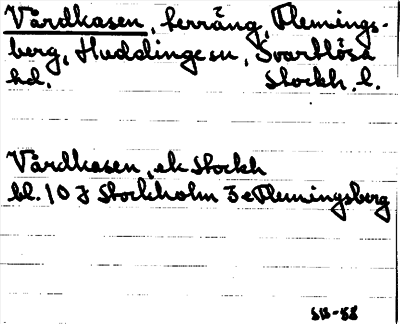 Vårdkasen, terräng, Flemings-
berg, Huddinge sn, Svartlösa
hd. Stockh. l.
Vårdkasen, ek Stockh
bl. 10 J Stockholm 3 e Flemingsberg